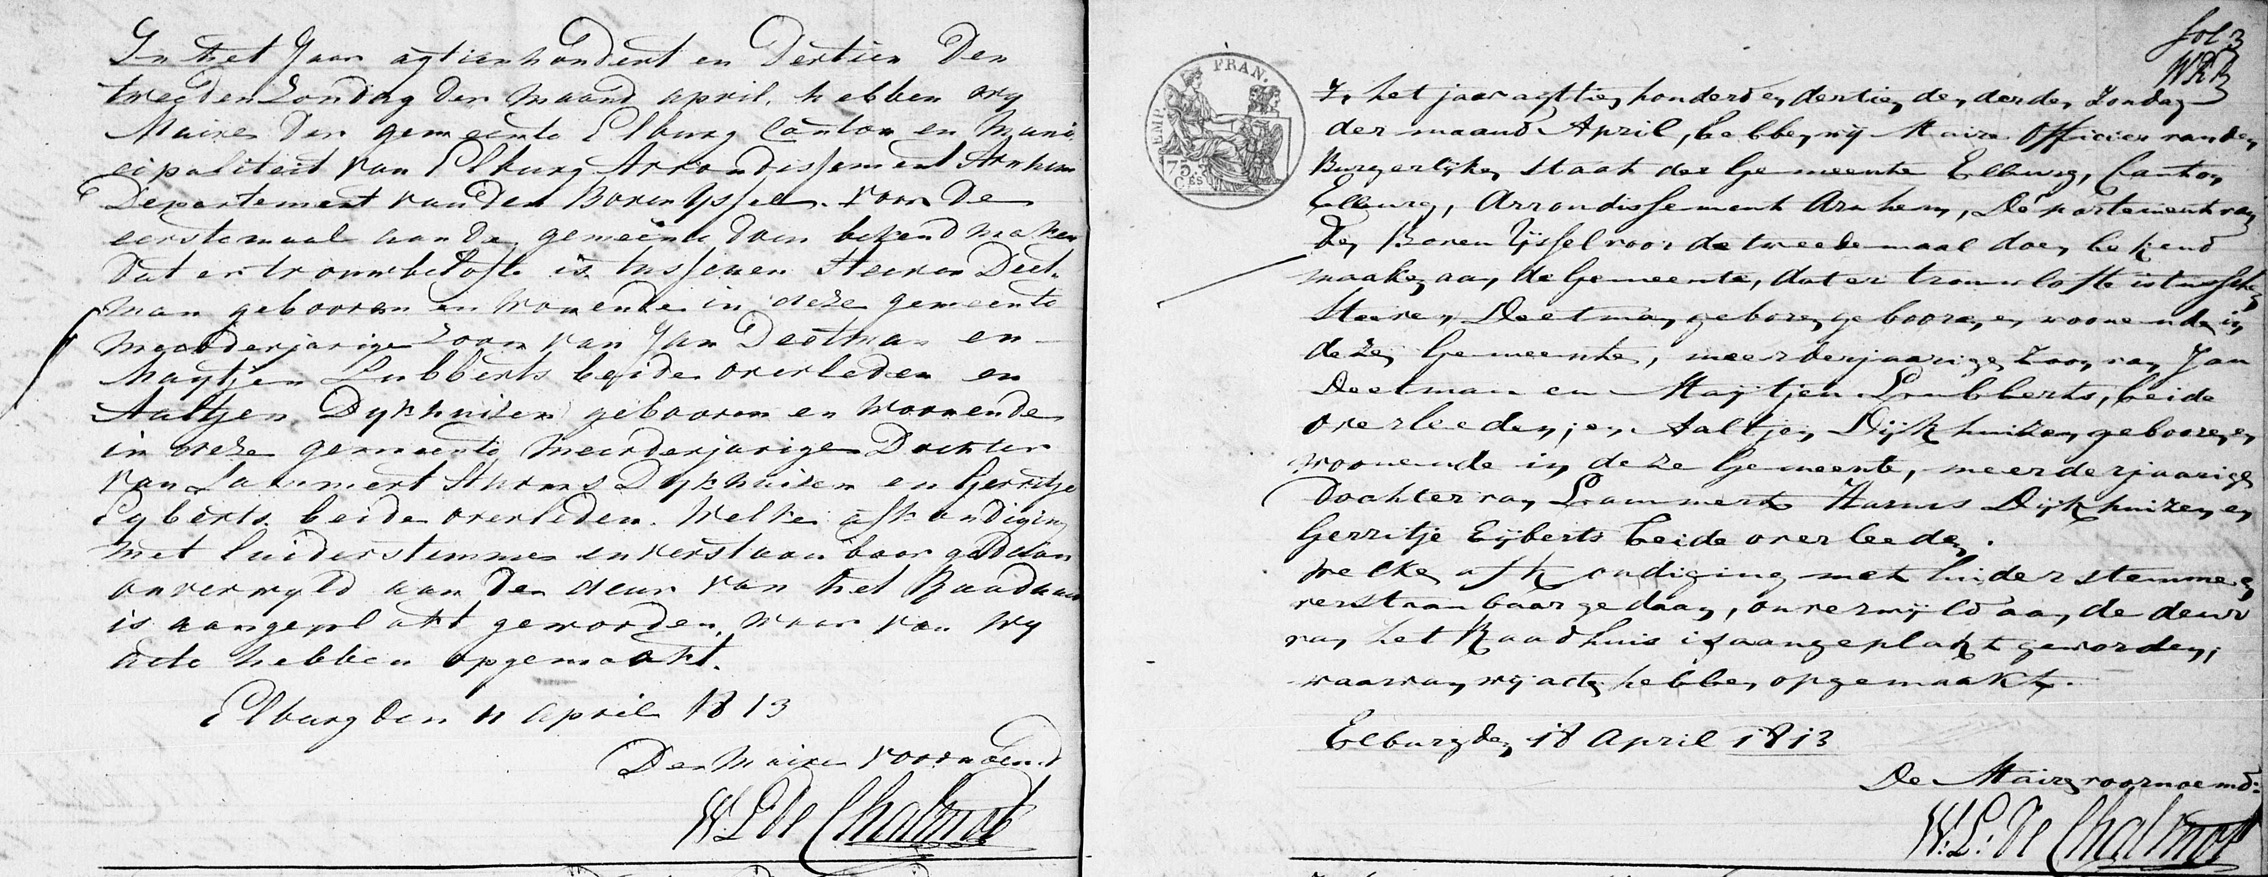 In Het Jaar agtienhondert en Dertien Den
tweeden Zondag der Maand april, hebben wy
Maire der gemeente Elburg Canton en Muni
cipaliteit van Elburg Arrondissement Arnhem
Departement van den Boven Yssel. voor De
eerstemaal aan de gemeente doen bekend maken
Dat er trouwbelofte is tusschen Steven Deet
man gebooren en wonende in deze gemeente
meerderjarige Zoon van Jan Deetman en
Maytjen Lubberts beide overleden en
Aaltjen Dykhuizen gebooren en woonende
in deze gemeente meerderjarige Dochter
van Lammert Harms Dykhuizen en Gerritje
Egberts beide overleden. Welke afkondiging
met luider stemmen en verstaanbaar gedaan
onverwyld aan den deur van het Raadhuis
is aangeplakt geworden, waar van wy
acte hebben opgemaakt.
Elburg den 11 April 1813
De Maire voornoemd
W L De Chalmot
fol 3
In het jaar agttien honderd en dertien den derden Zondag
der maand April, hebben wij Maire Officier van den
Burgerlijken Staat der Gemeente Elburg, Canton
Elburg, Arrondissement Arnhem, Departement van
den Boven Yssel voor de tweede maal doen bekend
maaken aan de Gemeente, dat er trouwlofte is tusschen
Steven Deetman geboren gebooren en woonende in
deze Gemeente, meerderjaarige Zoon van Jan
Deetman en Maytjen Lubberts, beide
overleeden; en Aaltjen Dijkhuizen gebooren en
woonende in deze Gemeente, meerderjaarige
Dochter van Lammert Harms Dijkhuizen en
Gerritje Eijberts beide overleeden.
Welke afkondiging met luider stemme en
verstaanbaar gedaan, onverwijld aan de deur
van het Raadhuis is aangeplakt geworden,
waarvan wij acte hebben opgemaakt.
Elburg den 18 April 1813
De Maire voornoemd:
W: L: De Chalmot
EMP. FRAN.
75.
CES